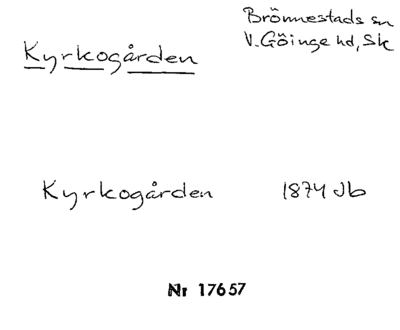 Brönnestads sn
V.Göinge hd, Sk
Kyrkogården
Kyrkogården 1874 Jb
Nr 17657